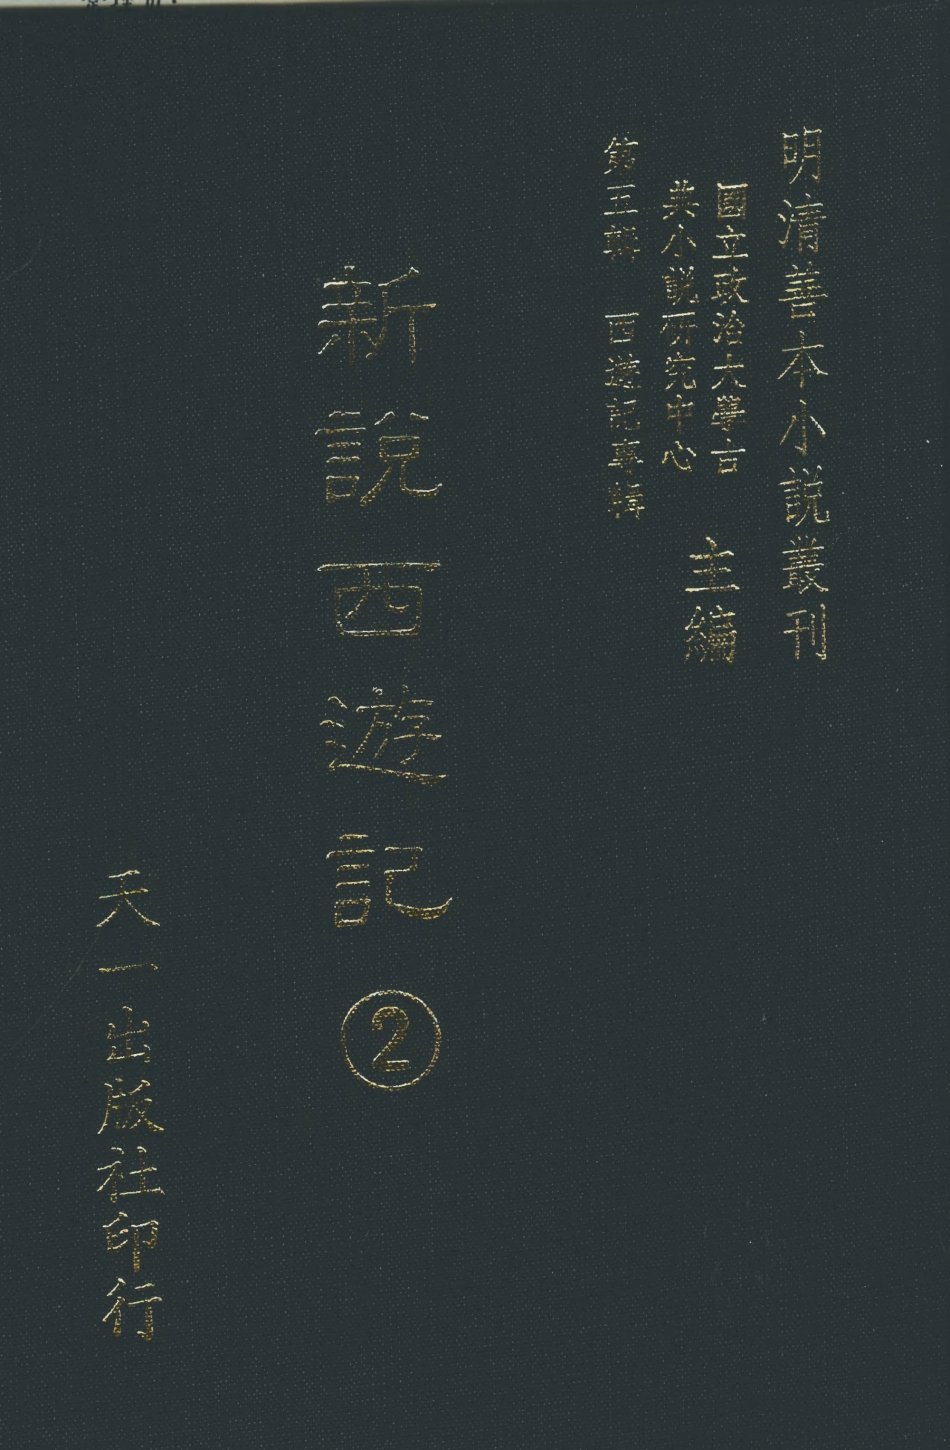 明清善本小説叢刊
國立政治大學古
典小說研究中心
主編
第五輯 西遊記專輯
新說西遊記
②
天一出版社印行